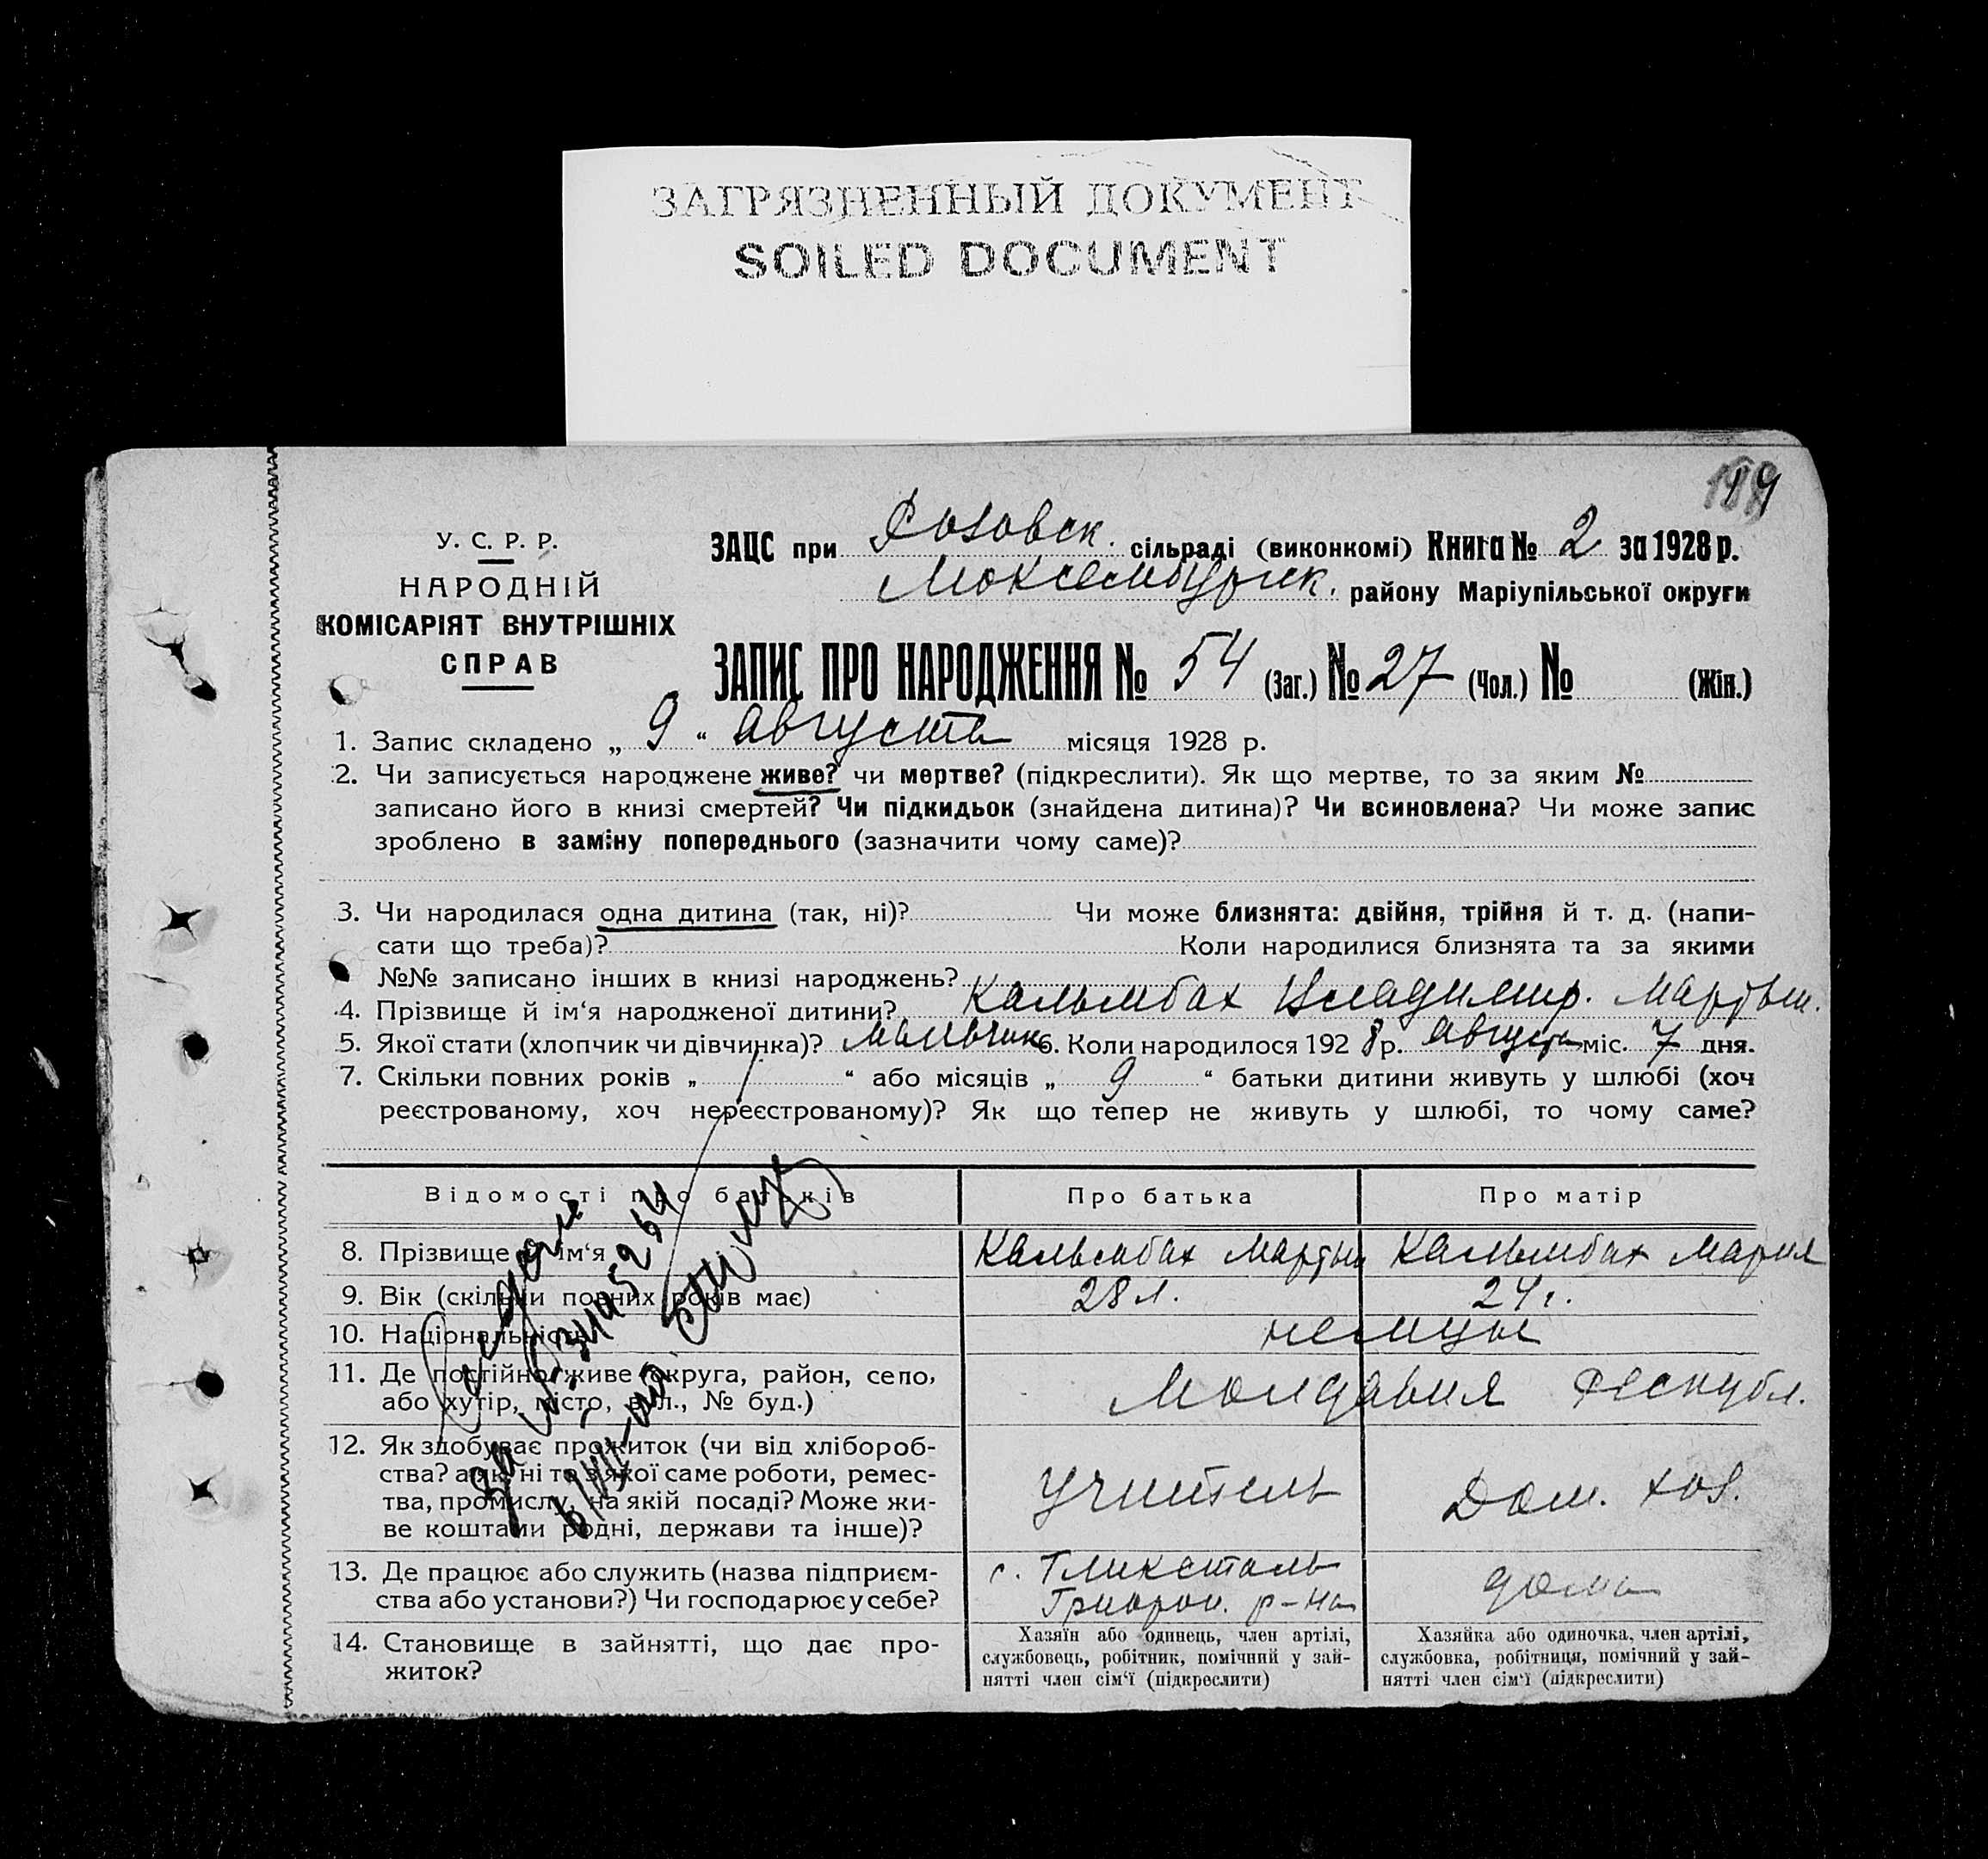 ЗАГРЯЗНЕННЫЙ ДОКУМЕНТ
SOILED DOCUMENT
У. С. Р. Р.
НАРОДНІЙ
КОМІСАРІЯТ ВНУТРІШНІХ
СПРАВ
ЗАЦС при Розовск. сільраді (виконкомі) Книга № 2 за 1928 р.
Люксембургск. району Маріупільської округи
ЗАПИС ПРО НАРОДЖЕННЯ № 54 (Заг.) № 27 (Чол.) № (Жін.)
1. Запис складено „ 9 “ августа місяця 1928 р.
2. Чи записується народжене живе? чи мертве? (підкреслити). Як що мертве, то за яким №
записано його в книзі смертей? Чи підкидьок (знайдена дитина)? Чи всиновлена? Чи може запис
зроблено в заміну попереднього (зазначити чому саме)?
3. Чи народилася одна дитина (так, ні)? Чи може близнята: двійня, трійня й т. д. (напи-
сати що треба)? Коли народилися близнята та за якими
№№ записано інших в книзі народжень?
4. Прізвище й ім‘я народженої дитини? Кальмбах Владимир. Мартын.
5. Якої стати (хлопчик чи дівчинка)? мальчик 6. Коли народилося 1928 р. августа міс. 7 дня.
7. Скільки повних років „ “ або місяців „ 9 “ батьки дитини живуть у шлюбі (хоч
реєстрованому, хоч нереєстрованому)? Як що тепер не живуть у шлюбі, то чому саме?
Відомості про батьків Про батька Про матір
8. Прізвище й ім‘я Кальмбах Мартын Кальмбах Мария
9. Вік (скільки повних років має) 28 л. 24 г.
10. Національність немцы
11. Де постійно живе (округа, район, село,
або хутір, місто, вул., № буд.) Молдавия Республ.
12. Як здобуває прожиток (чи від хлібороб-
ства? а як ні то з якої саме роботи, ремес-
тва, промислу, на якій посаді? Може жи-
ве коштами родні, держави та інше)? учитель Дом. хоз.
13. Де працює або служить (назва підприєм-
ства або установи?) Чи господарює у себе? с. Гликсталь
Григориоп. р-на дома
14. Становище в зайнятті, що дає про-
житок?
Хазяїн або одинець, член артілі,
службовець, робітник, помічний у зай-
нятті член сім‘ї (підкреслити)
Хазяйка або одиночка, член артілі,
службовка, робітниця, помічний у зай-
нятті член сім‘ї (підкреслити)